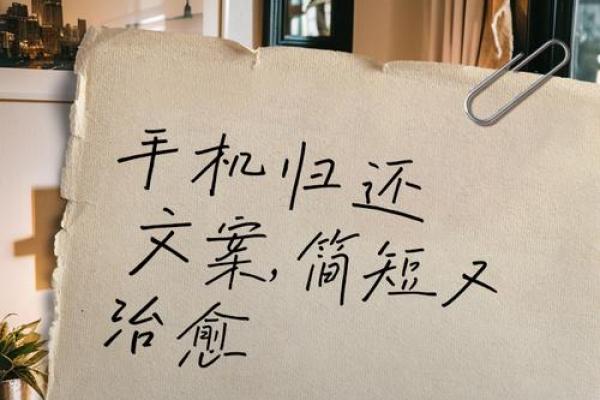 手机归还
文案,简短又
治愈